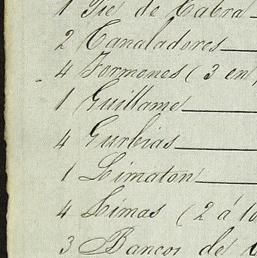 1 Pie de Cabra
2 Canaladores
4 Formones (3 en
1 Guillame
4 Gurbias
1 Limaton
4 Limas (2 á lo
3 Bancos de